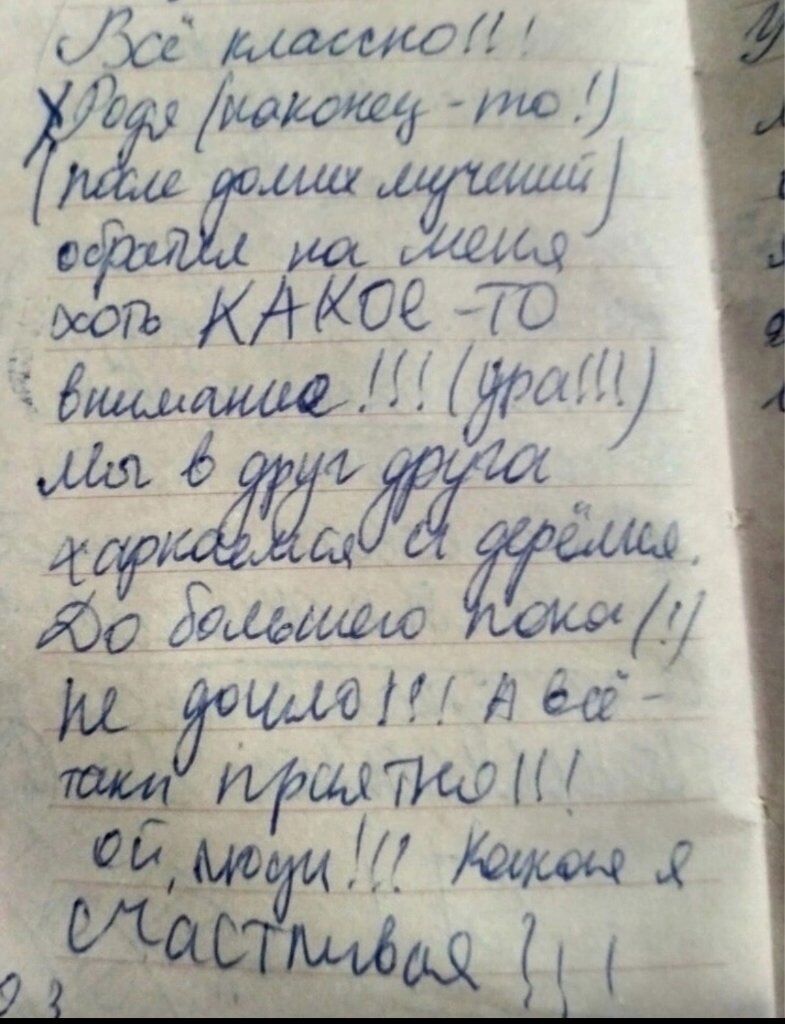 Всё классно!!!
Родя (наконец-то!)
(после долгих мучений)
обратил на меня
хоть КАКОЕ-ТО
внимание!!! (ура!!!)
Мы в друг друга
харкаемся и дерёмся.
До большего пока (!)
не дошло!!! А всё-
таки приятно!!!
ой, люди!!! Какая я
счастливая!!!